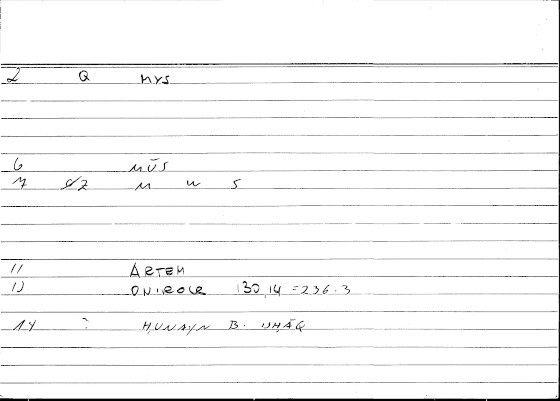 2 Q MYS
6 MŪS
7 M W S
11 ARTEM
12 ONIROCR 130,14 = 236.3
14 ? ḤUNAYN B. ISḤĀQ